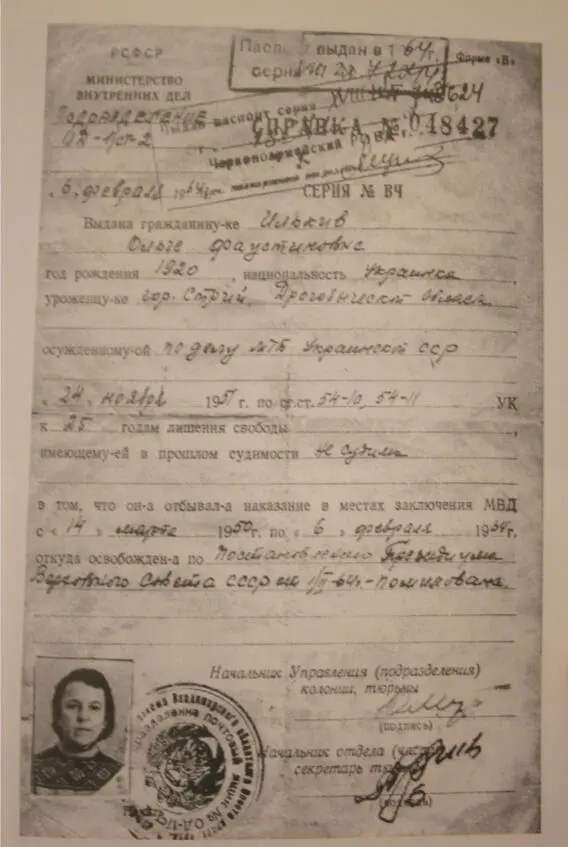 РСФСР
МИНИСТЕРСТВО
ВНУТРЕННИХ ДЕЛ
Подразделение
ОД-1/ст-2
Паспорт выдан в 1 64г.
серия
Форма «В»
Выдан паспорт серия
СПРАВКА № 048427
Черноармейский РОВД
„ 6 „ февраля 1964г.
СЕРИЯ № ВЧ
Выдана гражданину-ке Илькив
Ольге Фаустиновне
год рождения 1920, национальность украинка
уроженцу-ке гор. Стрий, Дрогобыческой области
осужденному-ой по делу МГБ Украинской ССР
„ 24. ноября 1951 г. по ст.ст. 54-10, 54-11 УК
к 25 годам лишения свободы
имеющему-ей в прошлом судимости не судима
в том, что он-а отбывал-а наказание в местах заключения МВД
с «14» марта 1950 г. по «6» февраля 1964г.
откуда освобожден-а по Постановлению Президиума
Верховного Совета СССР от 1/II-64г.-помилована.
Начальник Управления (подразделения)
колонии, тюрьмы
(подпись)
Начальник отдела (части)
секретарь
(подпись)